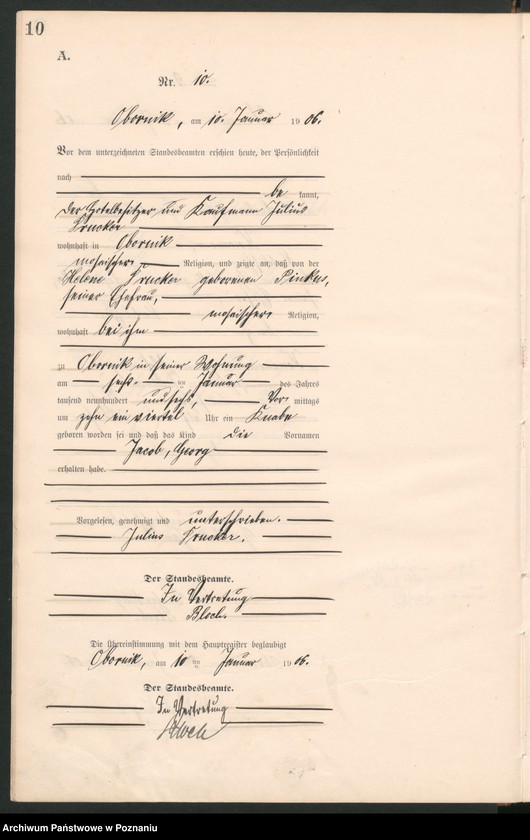 10
A.
Nr. 10.
Obornik, am 10. Januar 1906.
Vor dem unterzeichneten Standesbeamten erschien heute, der Persönlichkeit
nach
be kannt,
der Hotelbesitzer und Kaufmann Julius
Drucker
wohnhaft in Obornik
mosaischer Religion, und zeigte an, daß von der
Helene Drucker geborenen Pinkus,
seiner Ehefrau,
mosaischer Religion,
wohnhaft bei ihm
zu Obornik in seiner Wohnung
am sechs ten Januar des Jahres
tausend neunhundert und sechs, Vor mittags
um zehn ein viertel Uhr ein Knabe
geboren worden sei und daß das Kind die Vornamen
Jacob, Georg
erhalten habe.
Vorgelesen, genehmigt und unterschrieben.
Julius Drucker.
Der Standesbeamte.
In Vertretung
Bloch.
Die Übereinstimmung mit dem Hauptregister beglaubigt
Obornik, am 10 ten Januar 1906.
Der Standesbeamte.
In Vertretung
Bloch
Archiwum Państwowe w Poznaniu